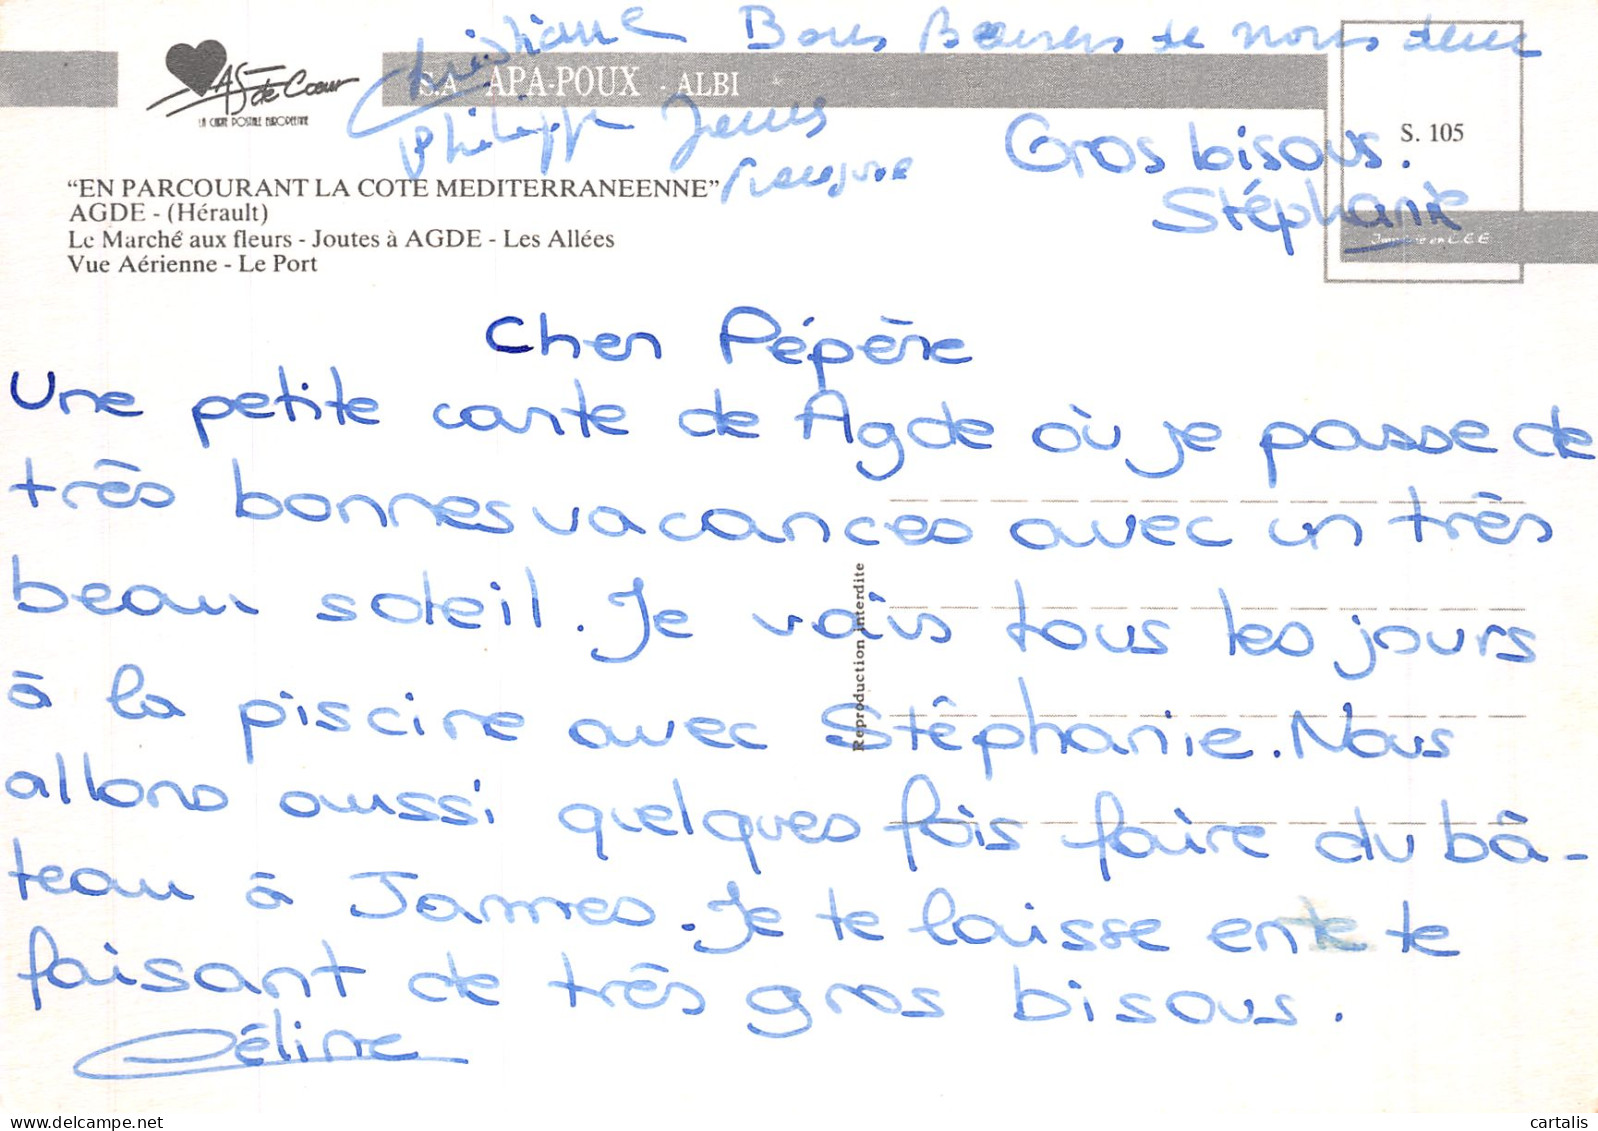 Christiane Bons Baisers de nous deux
As de Cœur
LA CARTE POSTALE EUROPEENNE
S.A APA-POUX - ALBI
Philippe James
Gros bisous.
S. 105
Stéphanie
"EN PARCOURANT LA COTE MEDITERRANEENNE"
AGDE - (Hérault)
Le Marché aux fleurs - Joutes à AGDE - Les Allées
Vue Aérienne - Le Port
Imprimé en C.E.E
Cher Pépère
Une petite carte de Agde où je passe de
très bonnes vacances avec un très
beau soleil. Je vais tous les jours
à la piscine avec Stéphanie. Nous
allons aussi quelques fois faire du bâ-
teau à James. Je te laisse en te
faisant de très gros bisous.
Céline
Reproduction interdite
cartalis